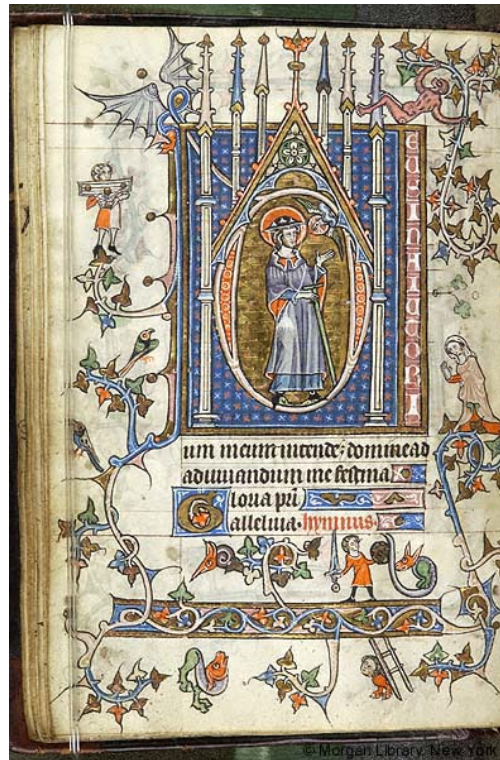 D
EUSINAIUTORI
um meum intende: domine ad
adiuuandum me festina
Gloria pri
alleluia·hymnus·
© Morgan Library, New York